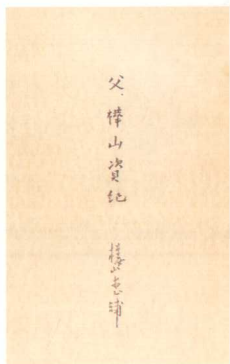 父、樺山資紀
樺山愛輔